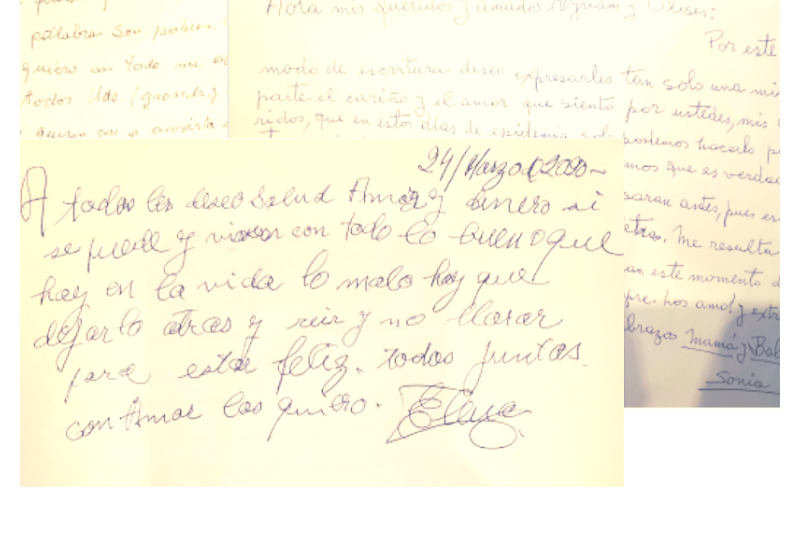 palabras son pobres.
quiero a todo
todos los (grandes y
Hola mis queridos y amados Myriam y Ulises:
Por este
modo de escritura deseo expresarles tan solo una
parte el cariño y el amor que siento por ustedes, mis
ridos, que en estos días de epidemia solo podemos hacerlo
mos que es verdad
antes, pues
letra. Me resulta
an este momento
pre. hos amo! y
brazos Mamá y
Sonia
24/Marzo/2020~
A todos les deseo Salud Amor y dinero si
se puede y vivan con todo lo bueno que
hay en la vida lo malo hay que
dejarlo atras y reir y no llorar
para estar feliz. todos juntos.
con Amor los quiero. Elena